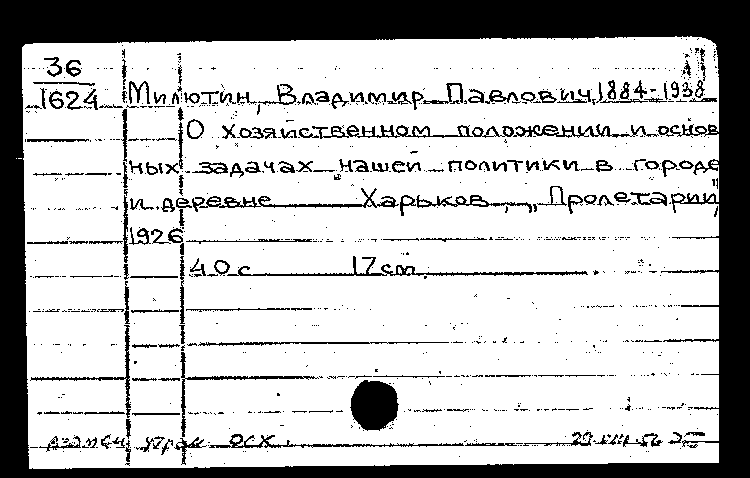 36
1624 Милютин, Владимир Павлович, 1884-1938
О хозяйственном положении и основ
ных задачах нашей политики в городе
и деревне Харьков, „Пролетарий"
1926
40 с 17 cm.
взамен утрач